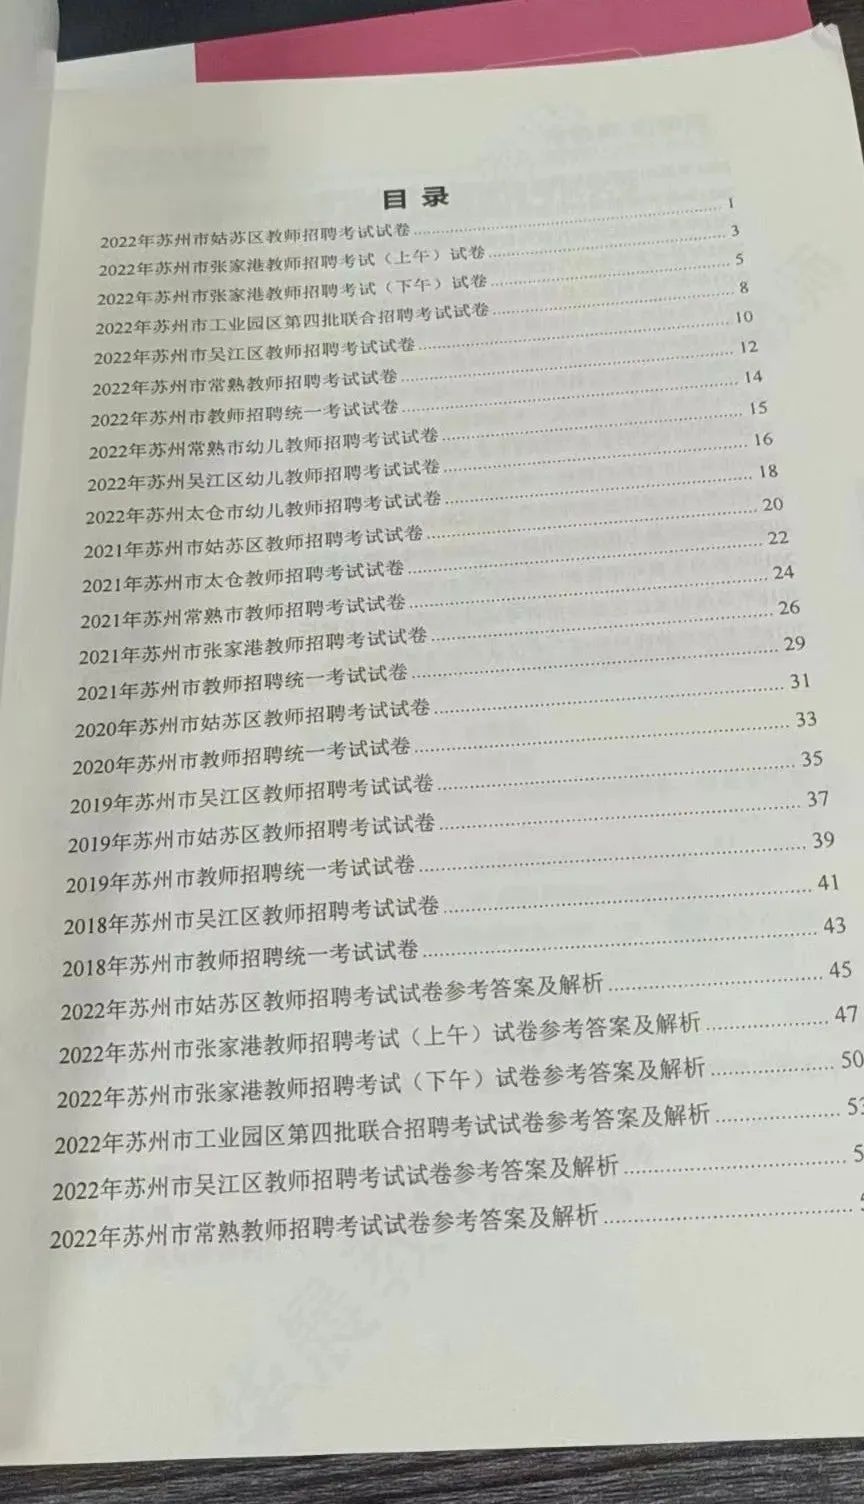 目 录
2022年苏州市姑苏区教师招聘考试试卷........................................1
2022年苏州市张家港教师招聘考试（上午）试卷........................................3
2022年苏州市张家港教师招聘考试（下午）试卷........................................5
2022年苏州市工业园区第四批联合招聘考试试卷........................................8
2022年苏州市吴江区教师招聘考试试卷........................................10
2022年苏州市常熟教师招聘考试试卷........................................12
2022年苏州市教师招聘统一考试试卷........................................14
2022年苏州常熟市幼儿教师招聘考试试卷........................................15
2022年苏州吴江区幼儿教师招聘考试试卷........................................16
2022年苏州太仓市幼儿教师招聘考试试卷........................................18
2021年苏州市姑苏区教师招聘考试试卷........................................20
2021年苏州市太仓教师招聘考试试卷........................................22
2021年苏州常熟市教师招聘考试试卷........................................24
2021年苏州市张家港教师招聘考试试卷........................................26
2021年苏州市教师招聘统一考试试卷........................................29
2020年苏州市姑苏区教师招聘考试试卷........................................31
2020年苏州市教师招聘统一考试试卷........................................33
2019年苏州市吴江区教师招聘考试试卷........................................35
2019年苏州市姑苏区教师招聘考试试卷........................................37
2019年苏州市教师招聘统一考试试卷........................................39
2018年苏州市吴江区教师招聘考试试卷........................................41
2018年苏州市教师招聘统一考试试卷........................................43
2022年苏州市姑苏区教师招聘考试试卷参考答案及解析........................45
2022年苏州市张家港教师招聘考试（上午）试卷参考答案及解析................47
2022年苏州市张家港教师招聘考试（下午）试卷参考答案及解析................50
2022年苏州市工业园区第四批联合招聘考试试卷参考答案及解析................53
2022年苏州市吴江区教师招聘考试试卷参考答案及解析........................5
2022年苏州市常熟教师招聘考试试卷参考答案及解析........................